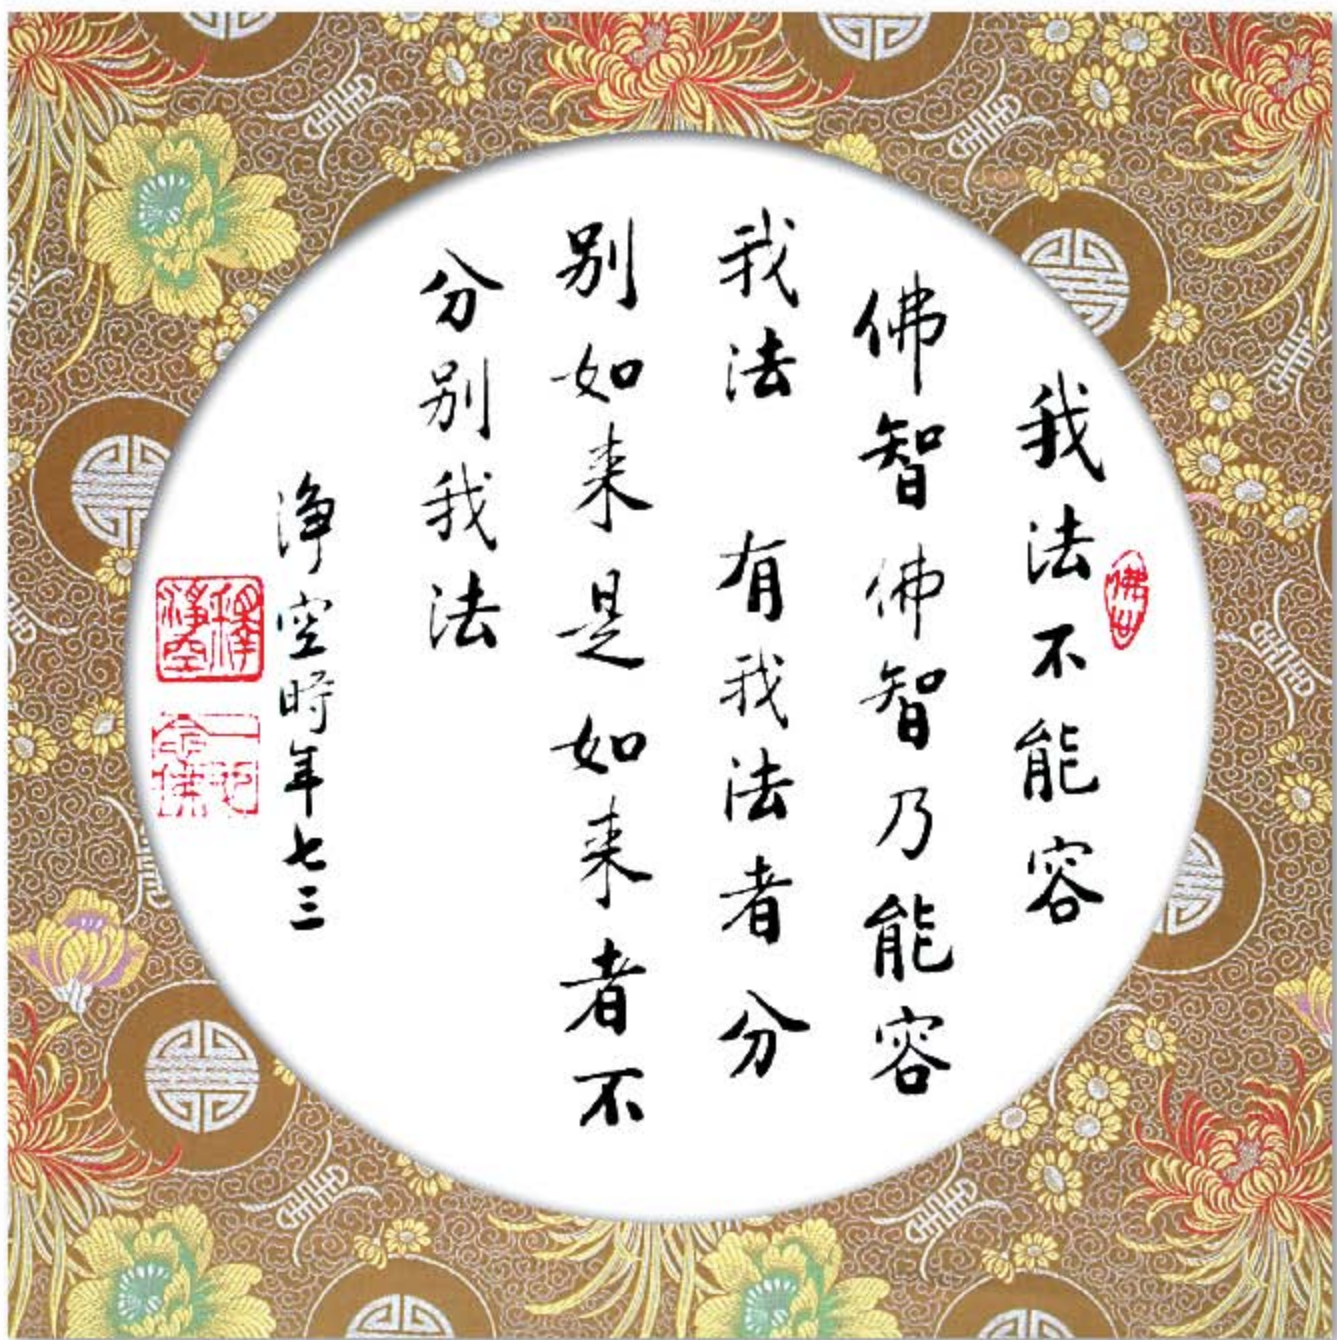 我法不能容
佛智佛智乃能容
我法 有我法者分
别如来是如来者不
分别我法
淨空時年七三
釋淨空